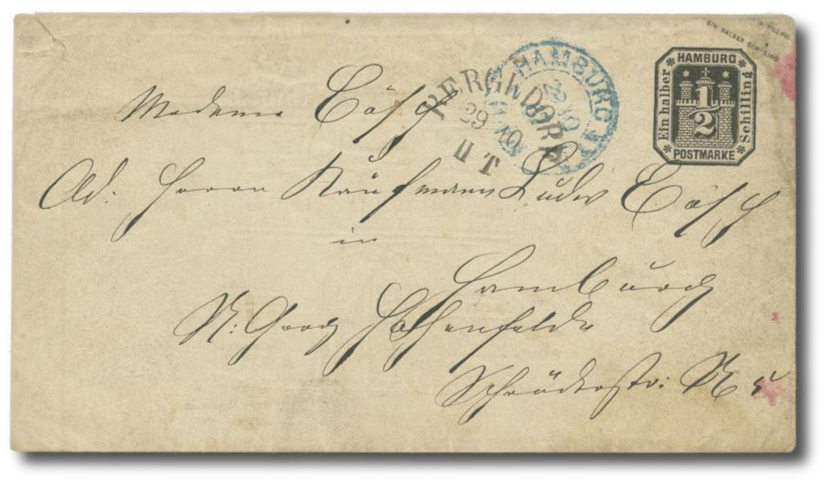 EIN HALBER SCHILLING
HAMBURG
Ein halber
1/2
Schilling
POSTMARKE
HAMBURG
BERGEDORF
29 10
II T
Madame
Ad: Herrn Kaufmann Ludw
in
Hamburg
St: Georg Hohenfelde
Schröderstr: №